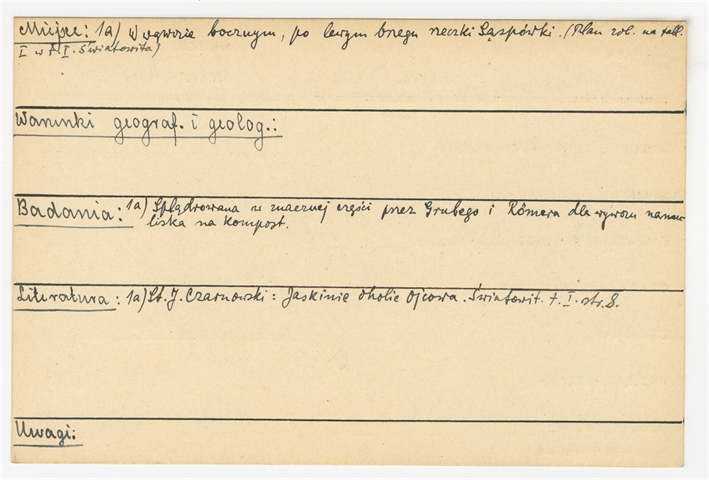 Miejsc: 1a) W wąwozie bocznym, po lewym brzegu rzeczki Sąspówki. (Plan zob. na tabl.
I w t. I. Światowita)
Warunki geograf. i geolog.:
Badania: 1a) Splądrowana w znacznej części przez Grubego i Römera dla wywozu namu-
liska na kompost.
Literatura: 1a) St. J. Czarnowski: Jaskinie okolic Ojcowa. Światowit. t. I. str. 8.
Uwagi: